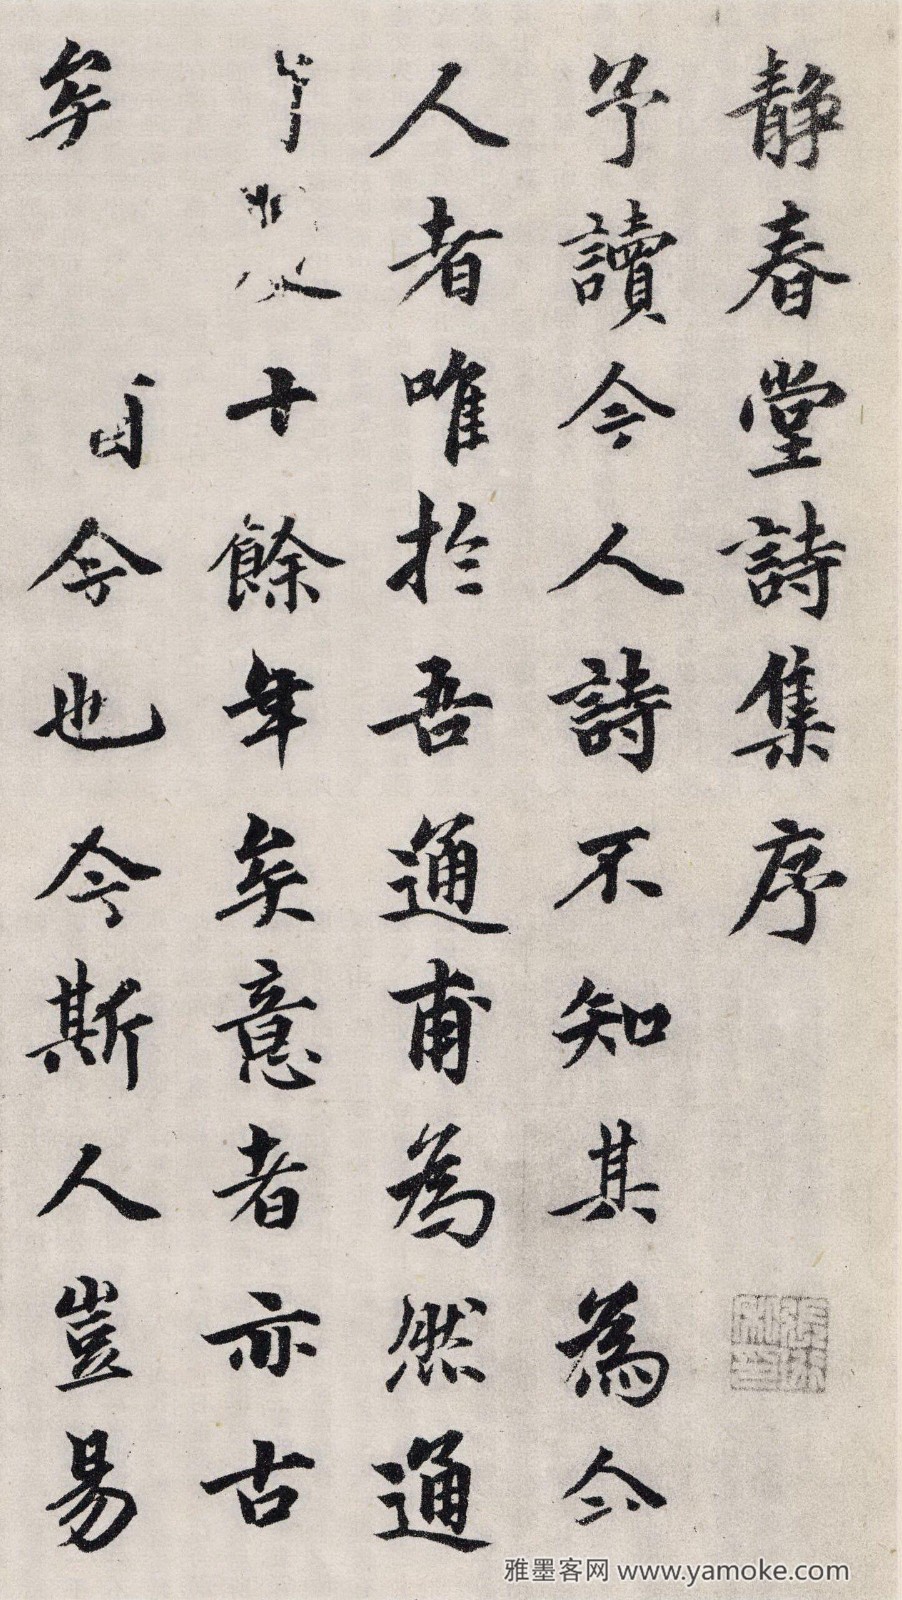 靜春堂詩集序
予讀今人詩不知其為今
人者唯於吾通甫為然通
十餘年矣意者亦古
矣 今也今斯人豈易
雅墨客网 www.yamoke.com